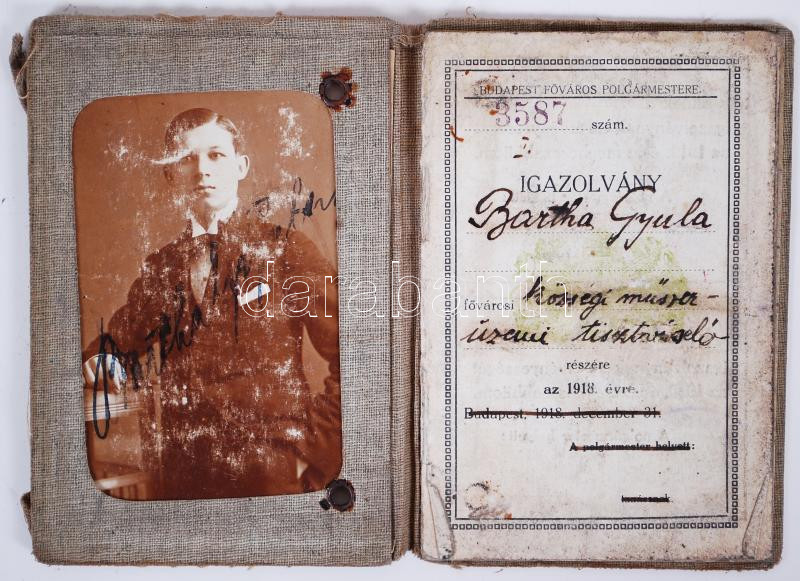 Bartha Gyula
BUDAPEST FŐVÁROS POLGÁRMESTERE.
3587 szám.
IGAZOLVÁNY
Bartha Gyula
fővárosi községi műszer-
üzemi tisztviselő
részére
az 1918. évre.
Budapest, 1918. december 31.
A polgármester helyett:
tanácsnok
darabanth